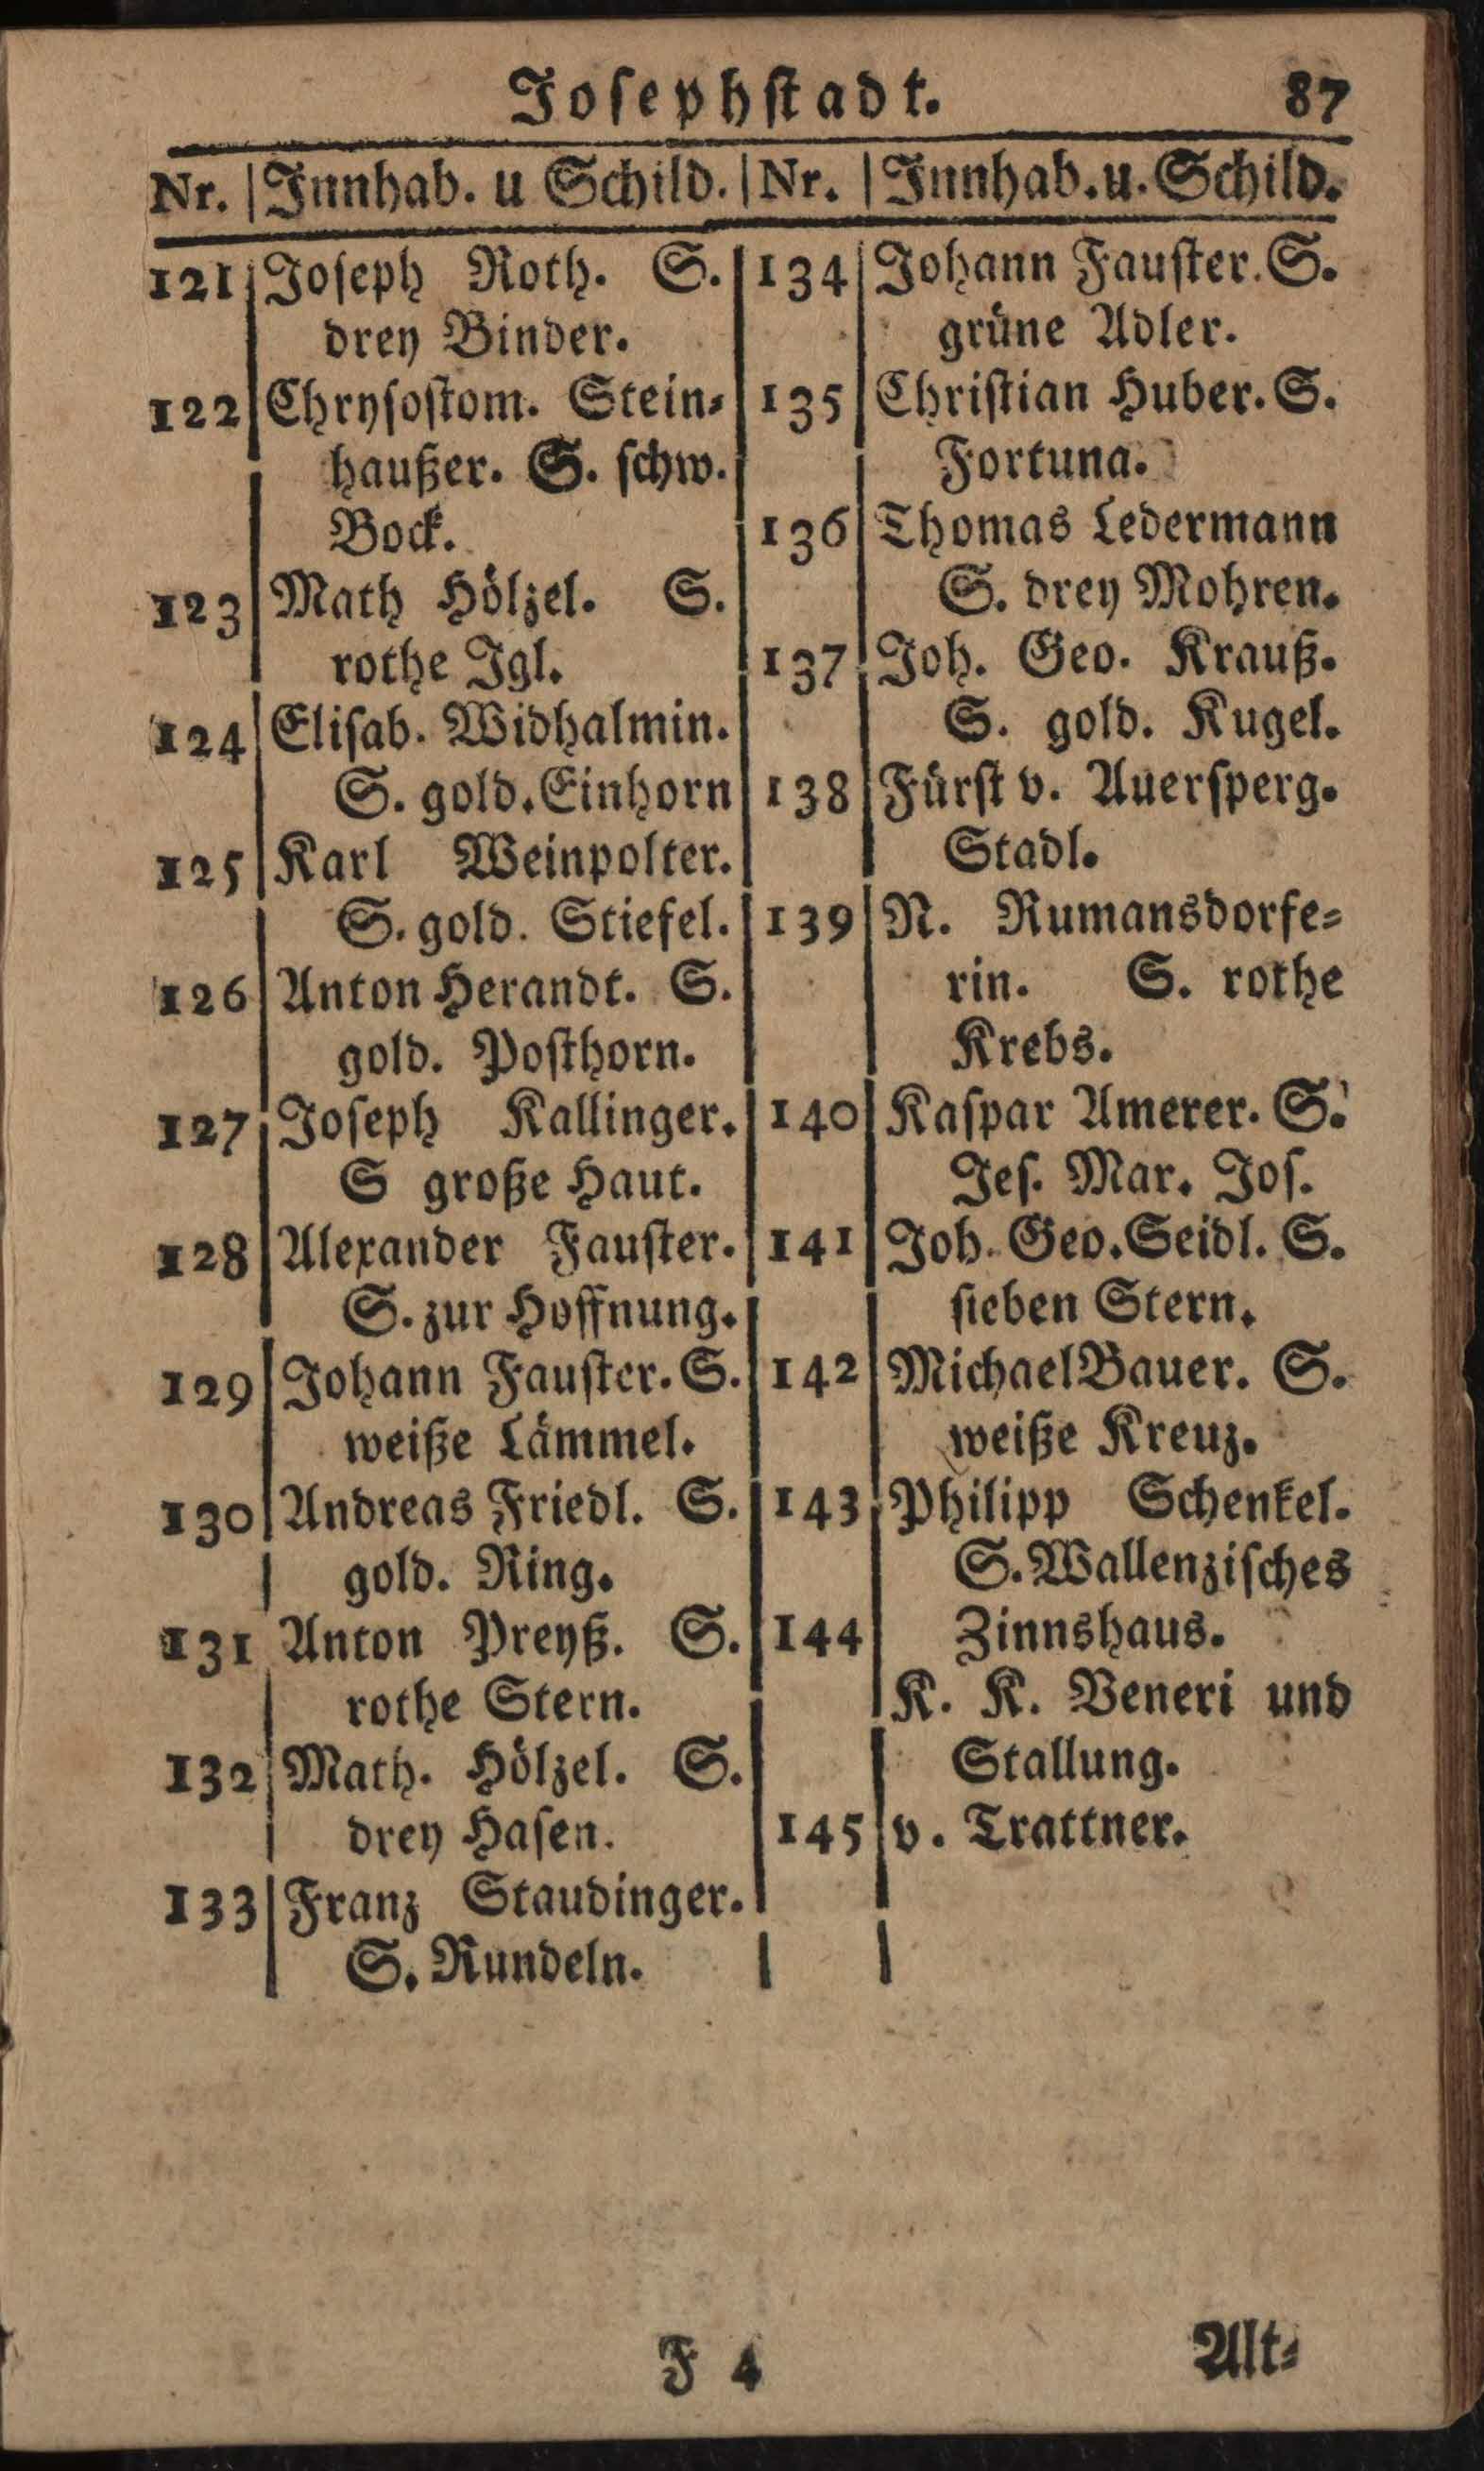 Josephstadt. 87
Nr. Innhab. u Schild. Nr. Innhab. u. Schild.
121 Joseph Roth. S.
drey Binder.
122 Chrysostom. Stein-
haußer. S. schw.
Bock.
123 Math Hölzel. S.
rothe Igl.
124 Elisab. Widhalmin.
S. gold. Einhorn
125 Karl Weinpolter.
S. gold. Stiefel.
126 Anton Herandt. S.
gold. Posthorn.
127 Joseph Kallinger.
S große Haut.
128 Alexander Fauster.
S. zur Hoffnung.
129 Johann Fauster. S.
weiße Lämmel.
130 Andreas Friedl. S.
gold. Ring.
131 Anton Preyß. S.
rothe Stern.
132 Math. Hölzel. S.
drey Hasen.
133 Franz Staudinger.
S. Rundeln.
134 Johann Fauster. S.
grüne Adler.
135 Christian Huber. S.
Fortuna.
136 Thomas Ledermann
S. drey Mohren.
137 Joh. Geo. Krauß.
S. gold. Kugel.
138 Fürst v. Auersperg.
Stadl.
139 N. Rumansdorfe-
rin. S. rothe
Krebs.
140 Kaspar Amerer. S.
Jes. Mar. Jos.
141 Joh. Geo. Seidl. S.
sieben Stern.
142 Michael Bauer. S.
weiße Kreuz.
143 Philipp Schenkel.
S. Wallenzisches
144 Zinnshaus.
K. K. Veneri und
Stallung.
145 v. Trattner.
F 4
Alt-